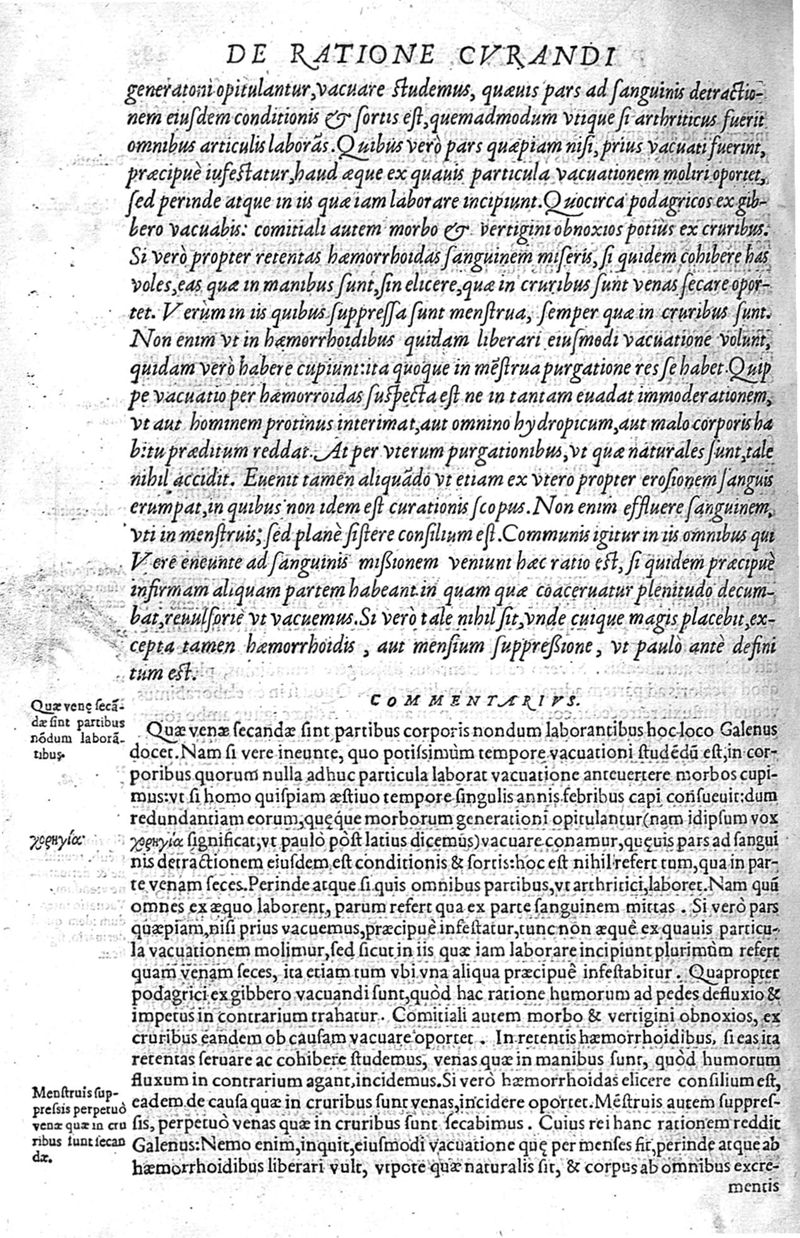 DE RATIONE CVRANDI
generationi opitulantur, vacuare studemus, quæuis pars ad sanguinis detractio-
nem eiusdem conditionis & sortis est, quemadmodum vtique si arthriticus fuerit
omnibus articulis laborãs. Quibus verò pars quæpiam nisi, prius vacuati fuerint,
præcipuè iufestatur, haud æque ex quauis particula vacuationem moliri oportet,
sed perinde atque in iis quæ iam laborare incipiunt. Quocirca podagricos ex gib-
bero vacuabis: comitiali autem morbo & vertigini obnoxios potius ex cruribus.
Si verò propter retentas hæmorrhoidas sanguinem miseris, si quidem cohibere has
voles, eas quæ in manibus sunt, sin elicere, quæ in cruribus sunt venas secare opor-
tet. Verùm in iis quibus suppressa sunt menstrua, semper quæ in cruribus sunt.
Non enim vt in hæmorrhoidibus quidam liberari eiusmodi vacuatione volunt,
quidam verò habere cupiunt: ita quoque in mẽstrua purgatione res se habet. Quip
pe vacuatio per hæmorroidas suspecta est ne in tantam euadat immoderationem,
vt aut hominem protinus interimat, aut omnino hydropicum, aut malo corporis ha
bitu præditum reddat. At per vterum purgationibus, vt quæ naturales sunt, tale
nihil accidit. Euenit tamen aliquãdo vt etiam ex vtero propter erosionem sanguis
erumpat, in quibus non idem est curationis scopus. Non enim effluere sanguinem,
vti in menstruis; sed planè sistere consilium est. Communis igitur in iis omnibus qui
Vere eneunte ad sanguinis missionem veniunt hæc ratio est, si quidem præcipuè
infirmam aliquam partem habeant in quam quæ coaceruatur plenitudo decum-
bat, reuulsorie vt vacuemus. Si verò tale nihil sit, vnde cuique magis placebit, ex-
cepta tamen hæmorrhoidis, aut mensium suppressione, vt paulò antè defini
tum est.
COMMENTARIVS.
Quæ venę secã-
dæ sint partibus
nõdum laborã-
tibus.
Quæ venæ secandæ sint partibus corporis nondum laborantibus hoc loco Galenus
docet. Nam si vere ineunte, quo potissimùm tempore vacuationi studẽdũ est, in cor-
poribus quorum nulla adhuc particula laborat vacuatione anteuertere morbos cupi-
mus: vt si homo quispiam æstiuo tempore singulis annis febribus capi consueuit: dum
redundantiam eorum, quęque morborum generationi opitulantur (nam id ipsum vox
χορηγία
χορηγία significat, vt paulò pòst latius dicemus) vacuare conamur, quęuis pars ad sangui
nis detractionem eiusdem est conditionis & sortis: hoc est nihil refert tum, qua in par-
te venam seces. Perinde atque si quis omnibus partibus, vt arthritici, laboret. Nam quũ
omnes ex æquo laborent, parum refert qua ex parte sanguinem mittas. Si verò pars
quæpiam, nisi prius vacuemus, præcipuè infestatur, tunc non æquè ex quauis particu-
la vacuationem molimur, sed sicut in iis quæ iam laborare incipiunt plurimùm refert
quam venam seces, ita etiam tum vbi vna aliqua præcipuè infestabitur. Quapropter
podagrici ex gibbero vacuandi sunt, quòd hac ratione humorum ad pedes defluxio &
impetus in contrarium trahatur. Comitiali autem morbo & vertigini obnoxios, ex
cruribus eandem ob causam vacuare oportet. In retentis hæmorrhoidibus, si eas ita
retentas seruare ac cohibere studemus, venas quæ in manibus sunt, quòd humorum
fluxum in contrarium agant, incidemus. Si verò hæmorrhoidas elicere consilium est,
Menstruis sup-
pressis perpetuò
venæ quæ in cru
ribus sunt secan
dæ.
eadem de causa quæ in cruribus sunt venas, incidere oportet. Mẽstruis autem suppres-
sis, perpetuò venas quæ in cruribus sunt secabimus. Cuius rei hanc rationem reddit
Galenus: Nemo enim, inquit, eiusmodi vacuatione quę per menses fit, perinde atque ab
hæmorrhoidibus liberari vult, vtpote quæ naturalis sit, & corpus ab omnibus excre-
mentis